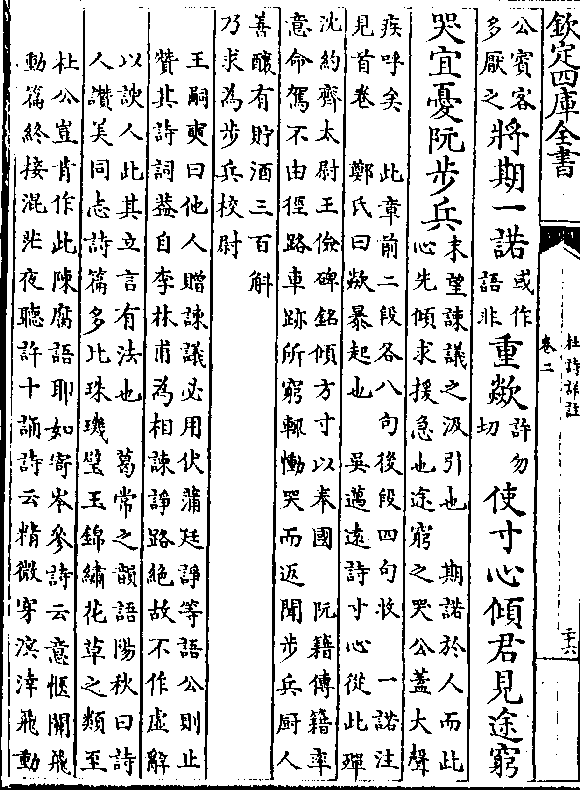 欽定四庫全書
杜詩詳註
卷二
公賓客
多厭之
將期一諾
或作
語非
重歘
許勿
切
使寸心傾君見途窮
哭宜憂阮步兵
末望諫議之汲引也　期諾於人而此
心先傾求援急也途窮之哭公蓋大聲
疾呼矣　此章前二段各八句後段四句收　一諾注
見首卷　鄭氏曰歘暴起也　吳邁遠詩寸心從此殫
沈約齊太尉王儉碑銘傾方寸以奉國　阮籍傳籍率
意命駕不由徑路車跡所窮輒慟哭而返聞步兵厨人
善釀有貯酒三百斛
乃求為步兵校尉
王嗣奭曰他人贈諫議必用伏蒲廷諍等語公則止
贊其詩詞葢自李林甫為相諫諍路絶故不作虛辭
以諛人此其立言有法也　葛常之韻語陽秋曰詩
人讃美同志詩篇多比珠璣璧玉錦繡花草之類至
杜公豈肯作此陳腐語耶如寄岑參詩云意愜關飛
動篇終接混茫夜聽許十誦詩云精微穿溟涬飛動